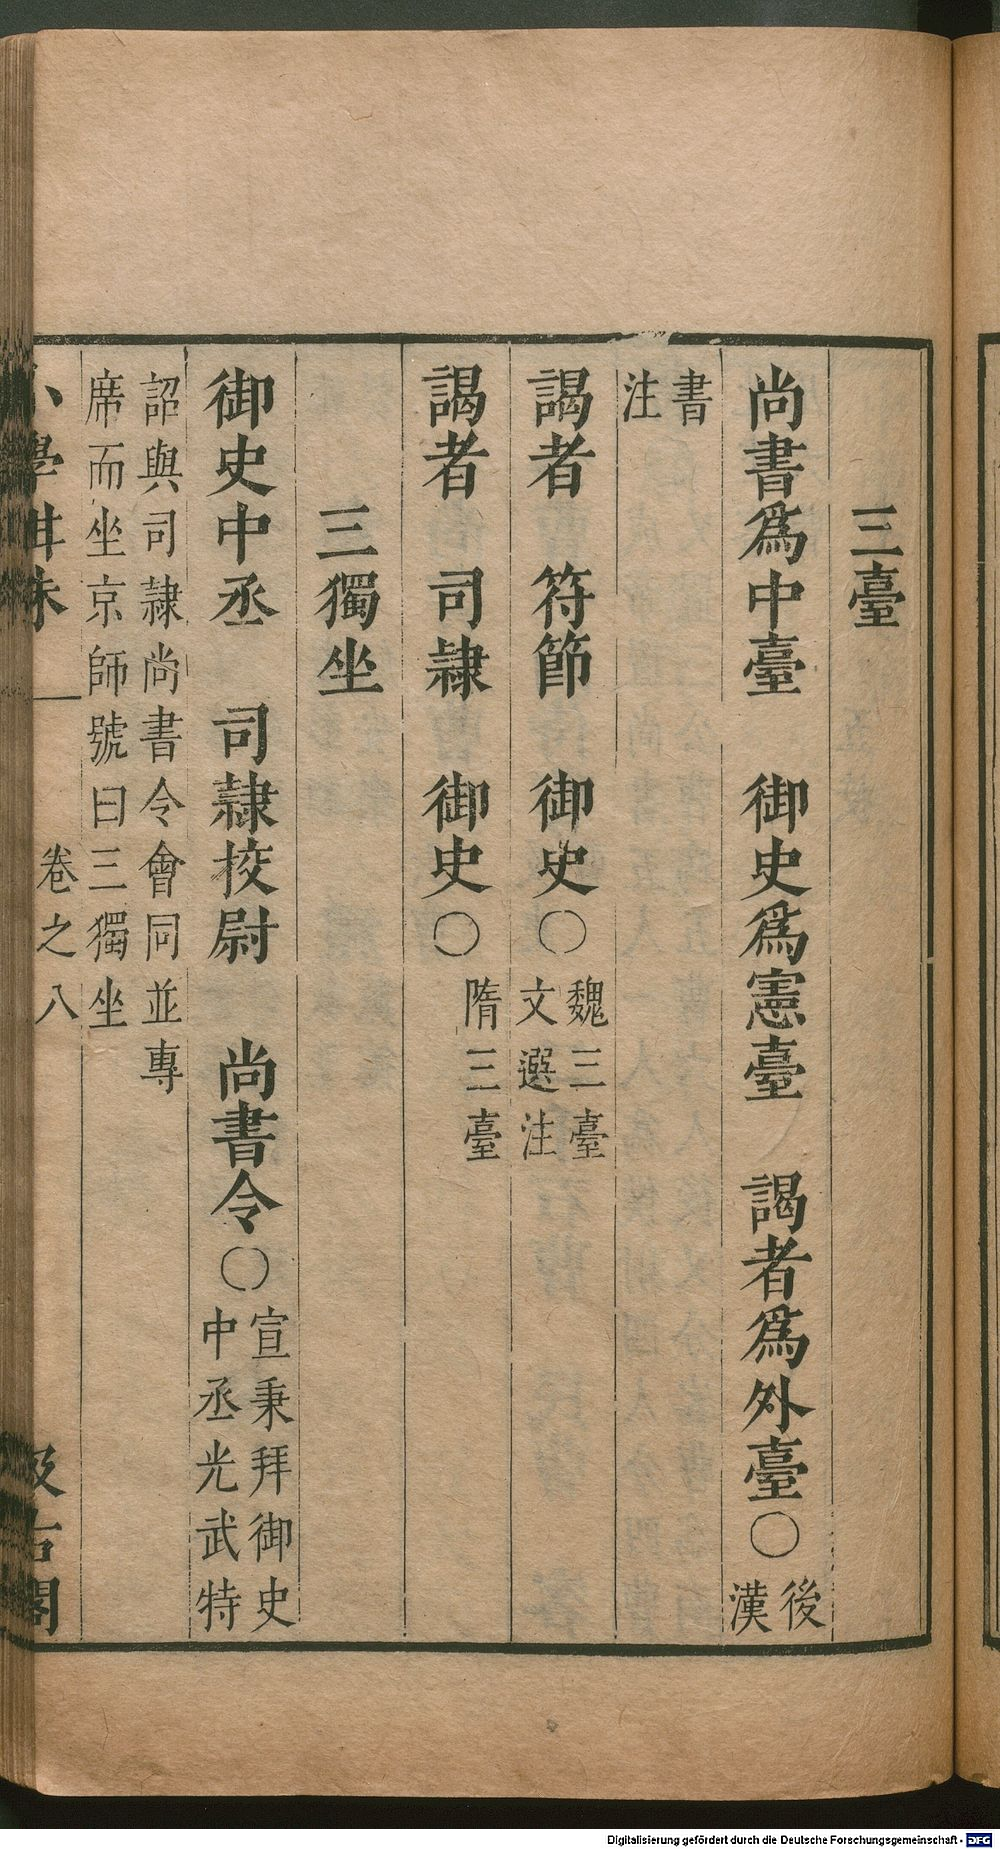 三臺
尚書爲中臺 御史爲憲臺 謁者爲外臺〇後漢
書注
謁者 符節 御史〇魏三臺文選注
謁者 司隷 御史〇隋三臺
三獨坐
御史中丞 司隷挍尉 尚書令〇宣秉拜御史中丞光武特
詔與司隷尚書令會同並專席而坐京師號曰三獨坐
小學紺珠 卷之八 汲古閣
Digitalisierung gefördert durch die Deutsche Forschungsgemeinschaft - DFG